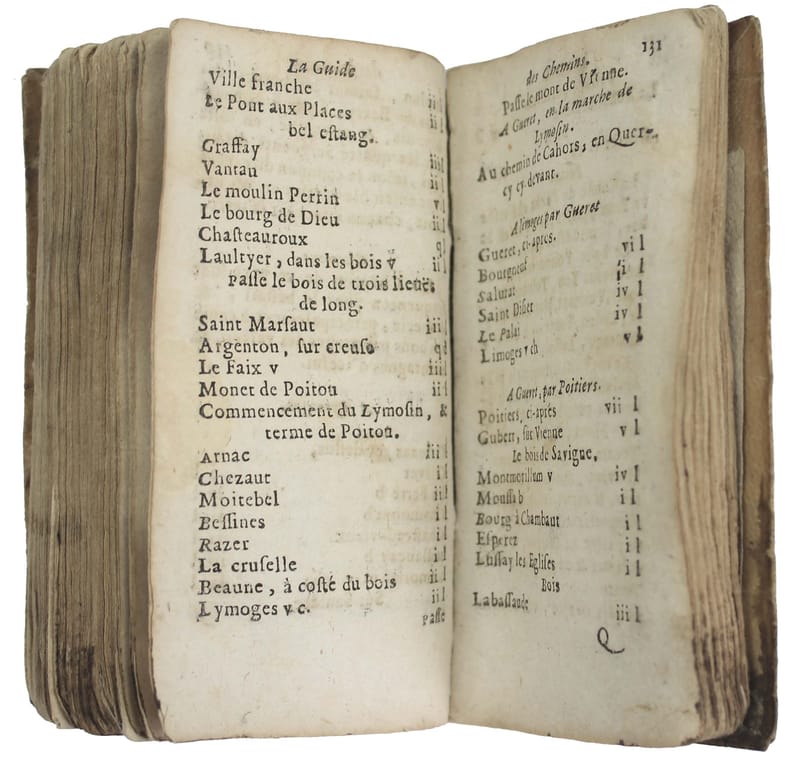 La Guide
Ville franche ii l
Le Pont aux Places ii l
bel estang.
Graffay iii l
Vantau ii l
Le moulin Perrin v l
Le bourg de Dieu ii l
Chasteauroux q
Laultyer, dans les bois v ii l
Passe le bois de trois lieues
de long.
Saint Marsaut iii l
Argenton, sur creuse q
Le Faix v iii l
Monet de Poitou ii l
Commencement du Lymosin, &
terme de Poitou.
Arnac iii l
Chezaut i l
Moitebel ii l
Bessines i l
Razer i l
La cruselle i l
Beaune, à costé du bois ii l
Lymoges v c. ii l
Passe
des Chemins. 131
Passe le mont de Vienne.
A Gueret, en la marche de
Lymosin.
Au chemin de Cahors, en Quer-
cy cy devant.
A limoges par Gueret
Gueret, ci-apres.
Bourgneuf vi l
Salurat ii l
Saint Disier iv l
Le Palai iv l
Limoges v ch v l
A Gueret, par Poitiers.
Poitiers, ci-aprés
Gubert, sur Vienne vii l
le bois de Savigue, v l
Montmorillum v iv l
Moussa b i l
Bourg à Chambaut i l
Esperez i l
Lussay les Eglises i l
Bois
Labassande iii l
Q